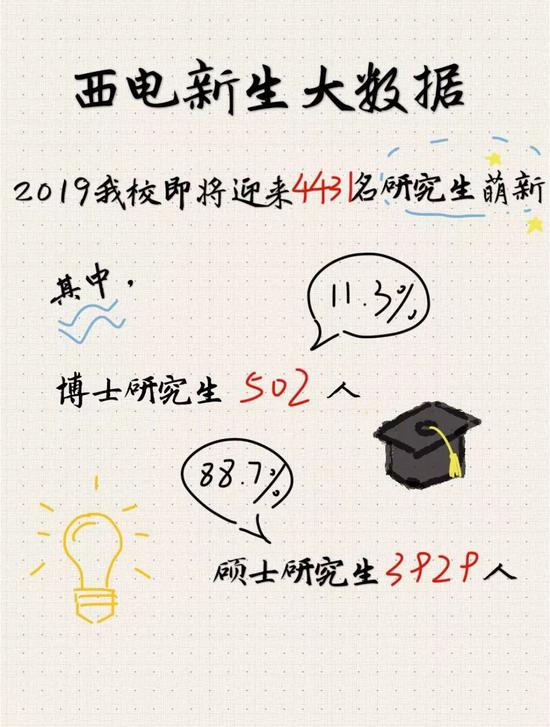 西电新生大数据
2019我校即将迎来4431名研究生萌新
其中，
11.3%
博士研究生 502 人
88.7%
硕士研究生3929人